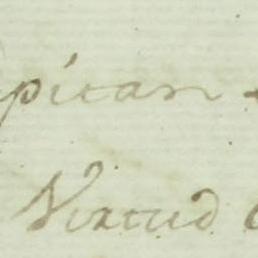 pitan
Virtud